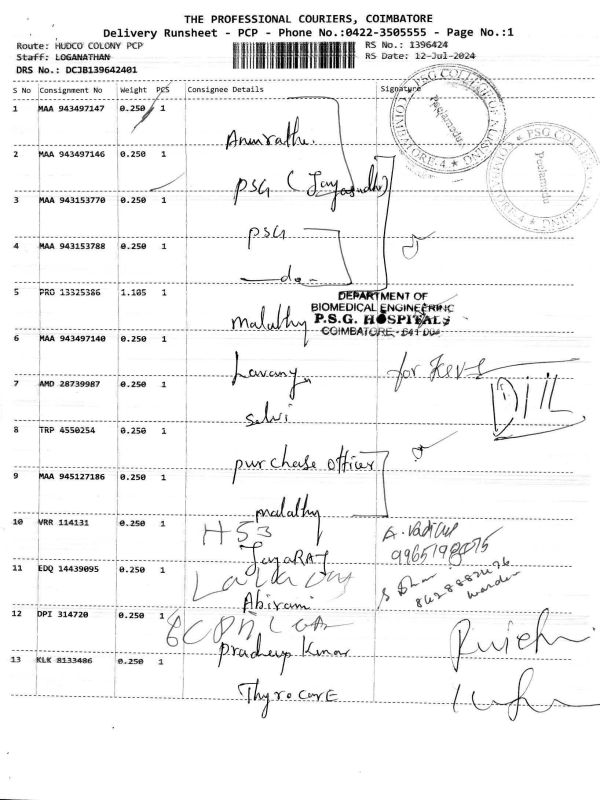 THE PROFESSIONAL COURIERS, COIMBATORE
Delivery Runsheet - PCP - Phone No.:0422-3505555 - Page No.:1
Route: HUDCO COLONY PCP RS No.: 1396424
Staff: LOGANATHAN RS Date: 12-Jul-2024
DRS No.: DCJB139642401
S No Consignment No Weight PCS Consignee Details Signature
1 MAA 943497147 0.250 1
Anurathe.
2 MAA 943497146 0.250 1
PSG (Jayasudha)
3 MAA 943153770 0.250 1
PSG
4 MAA 943153788 0.250 1
—do—
5 PRO 13325386 1.105 1
Malathy
DEPARTMENT OF
BIOMEDICAL ENGINEERING
P.S.G. HOSPITALS
COIMBATORE - 641 004
6 MAA 943497140 0.250 1
Lavanya
for
7 AMD 28739987 0.250 1
Selvi
8 TRP 4550254 0.250 1
purchase officer
9 MAA 945127186 0.250 1
malathy
10 VRR 114131 0.250 1
H53
JayaRAJ
11 EDQ 14439095 0.250 1
Abirami
warden
12 DPI 314720 0.250 1
Pradeep Kumar
13 KLK 8133486 0.250 1
Thyrocare
PSG COLLEGE OF NURSING
COIMBATORE-4
Peelamedu
PSG COLLEGE
Peelamedu